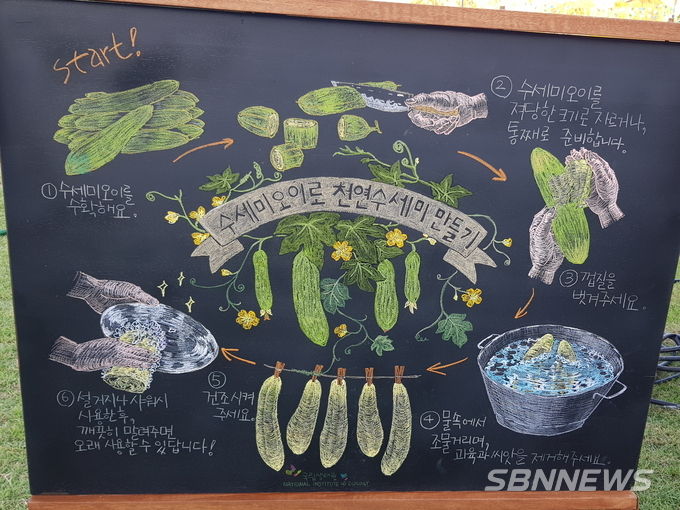 start!
수세미오이로 천연수세미 만들기
① 수세미오이를
수확해요.
② 수세미오이를
적당한 크기로 자르거나,
통째로 준비합니다.
③ 껍질을
벗겨주세요.
④ 물속에서
조물거리며,
과육과 씨앗을 제거해주세요.
⑤ 건조시켜
주세요.
⑥ 설거지나 샤워시
사용한후,
깨끗히 말려주면
오래 사용할 수 있답니다!
국립생태원
NATIONAL INSTITUTE OF ECOLOGY
SBNNEWS